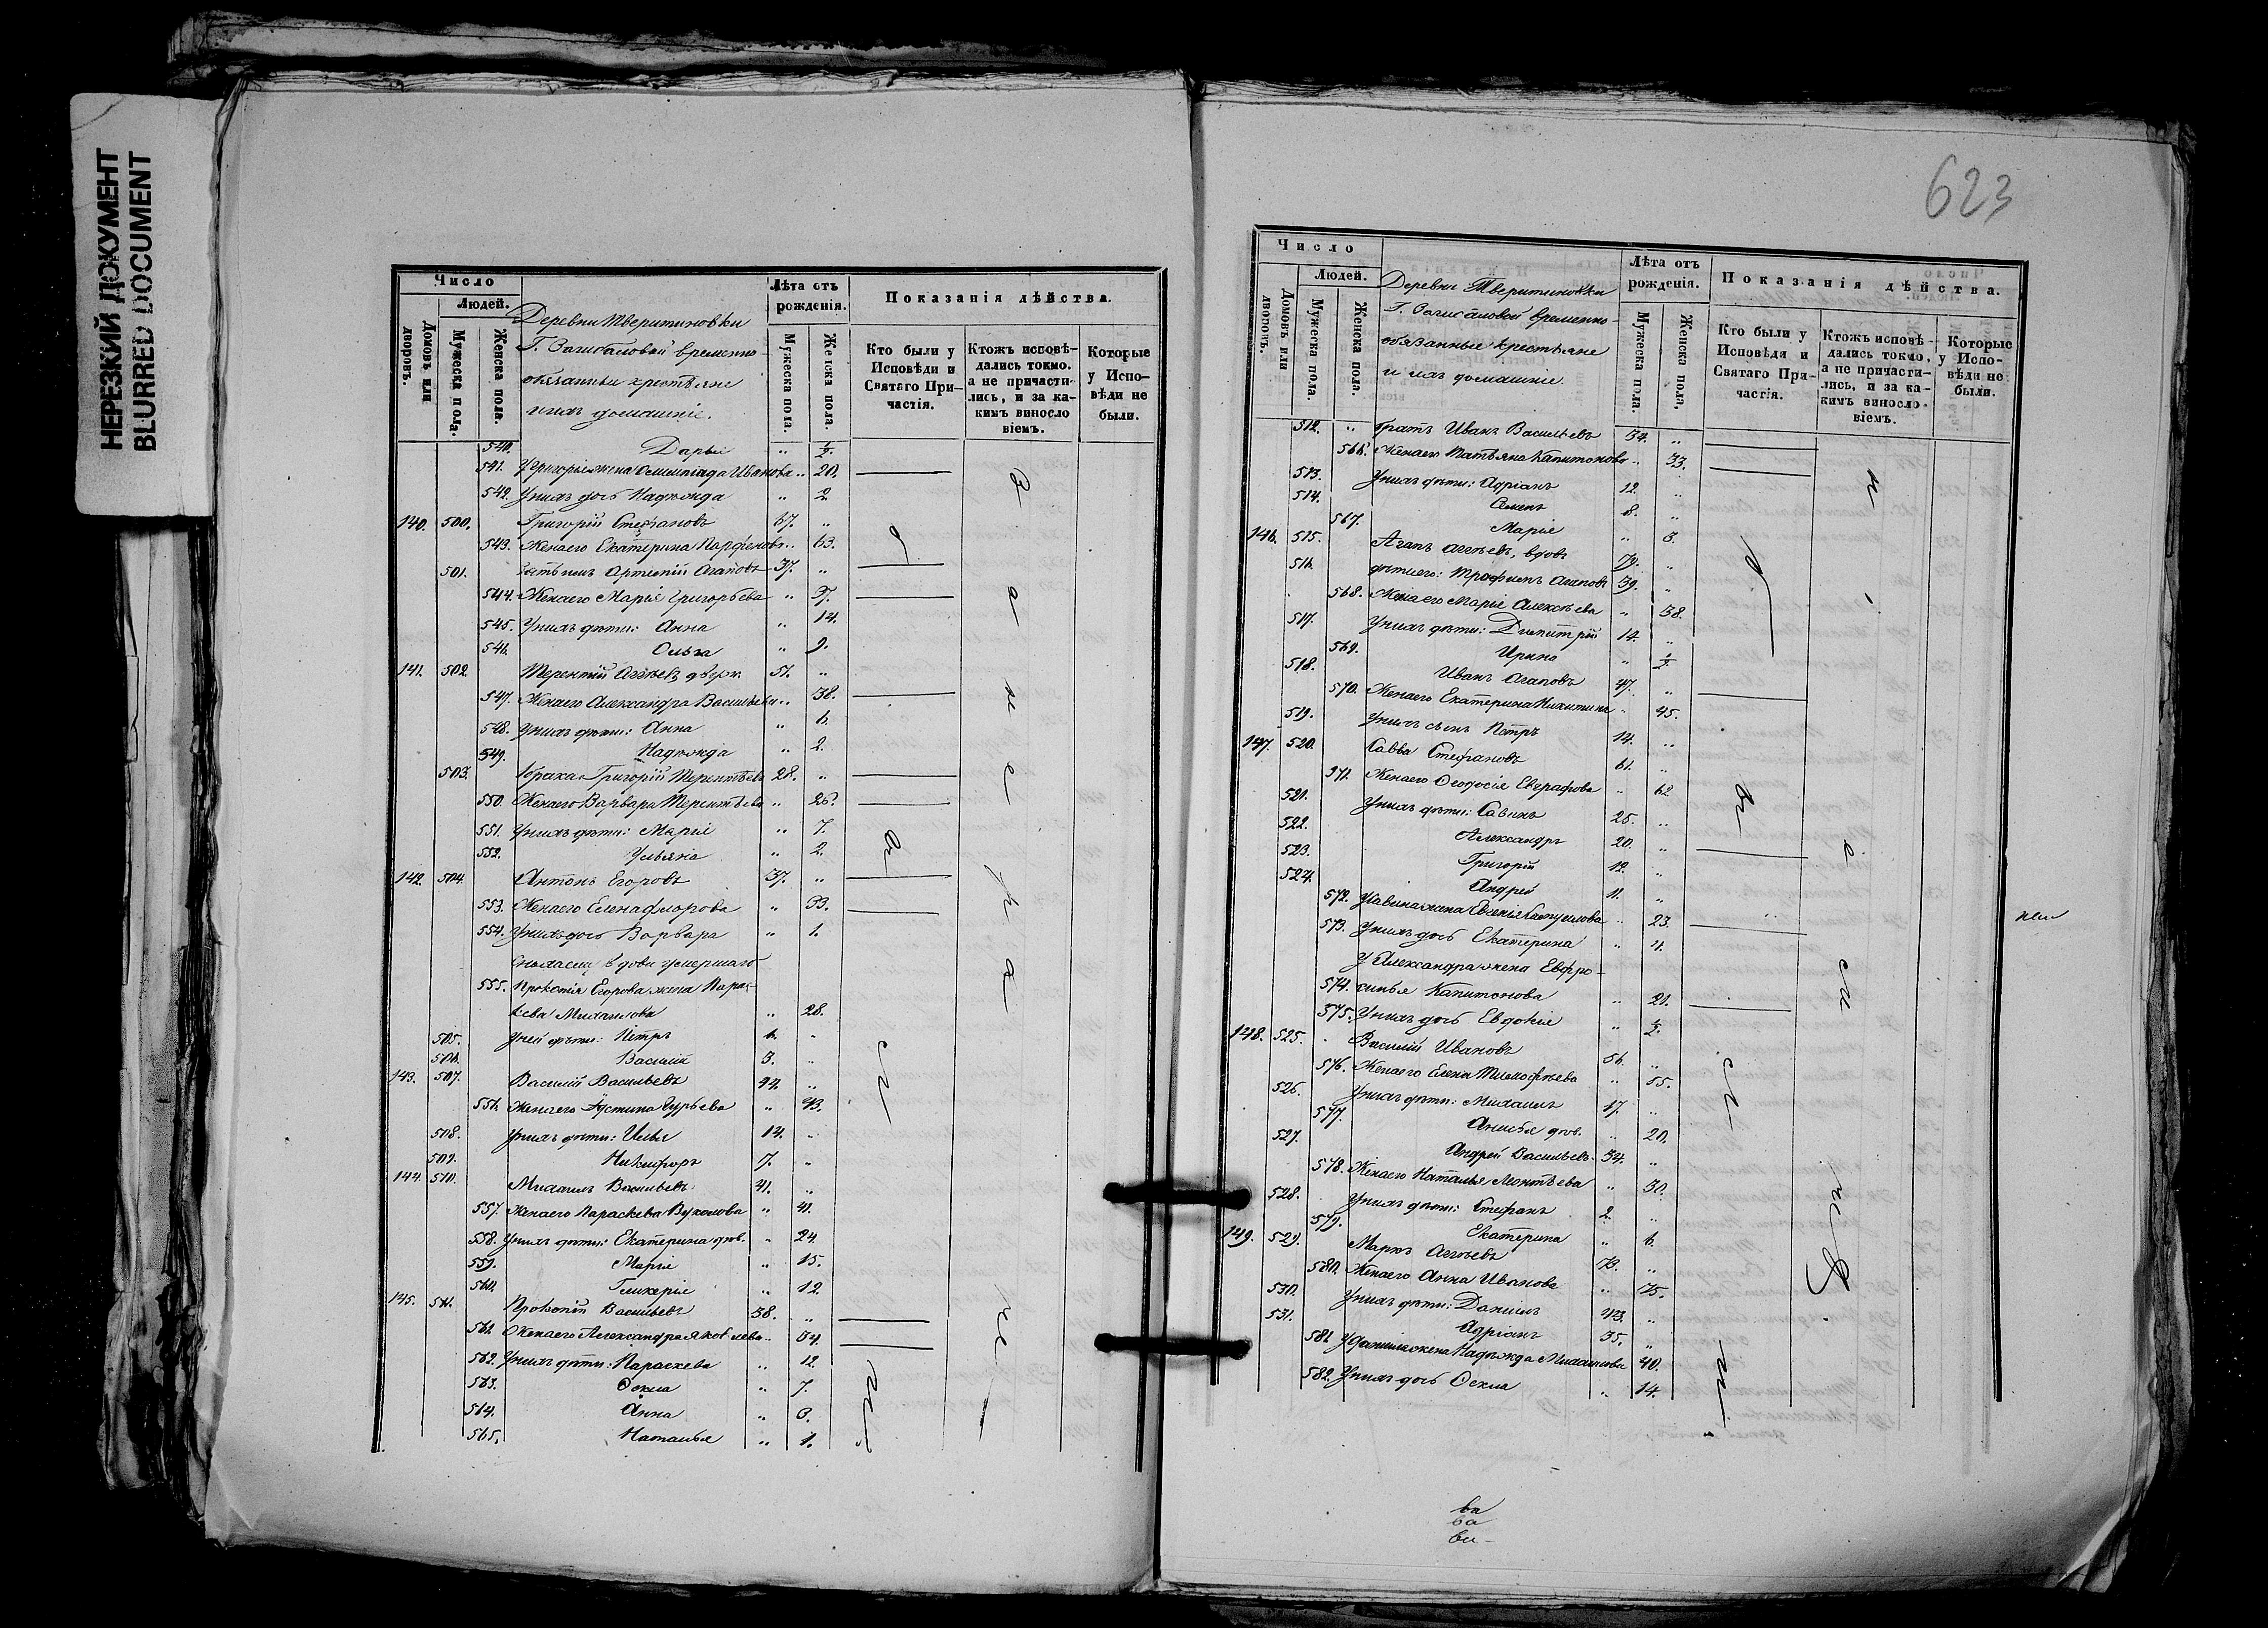 НЕРЕЗКИЙ ДОКУМЕНТ
BLURRED DOCUMENT
Число
Людей.
Домовъ или дворовъ.
Мужеска пола.
Женска пола.
Деревни Тверитиновки
Г. временно-
обязанные крестьяне
и ихъ домашніе.
Лѣта отъ рожденія.
Мужеска пола.
Женска пола.
Показанія дѣйства.
Кто были у Исповѣди и Святаго Причастія.
Ктожъ исповѣдались токмо. а не причастились, и за какимъ винословіемъ.
Которые у Исповѣди не были.
540. Дарья " ½.
541. У Григорія жена Олимпіада Иванова " 20.
542. У нихъ дочь Надежда " 2.
140. 500. Григорій Стефановъ 67. "
543. Жена его Екатерина Парфенова " 63.
501. Зять ихъ Артемій Агаповъ 37. "
544. Жена его Марія Григорьева " 37.
545. У нихъ дѣти: Анна " 14.
546. Ольга " 9.
141. 502. Терентій Аггѣевъ 51. "
547. Жена его Александра Васильева " 38.
548. У нихъ дѣти: Анна " 6.
549. Надежда " 2.
503. Григорій Терентьевъ 28. "
550. Жена его Варвара Терентьева " 26.
551. У нихъ дѣти: Марія " 7.
552. Ульяна " 2.
142. 504. Антонъ Егоровъ 37. "
553. Жена его Елена Флорова " 33.
554. У нихъ дочь Варвара " 1.
вдова умершаго
555. Прокопія Егорова жена Парас-
кева Михаилова " 28.
505. У ней дѣти: Петръ 6. "
506. Василій 3. "
143. 507. Василій Васильевъ 44. "
556. Жена его Устина Гурьева " 43.
508. У нихъ дѣти: Илья 14. "
509. Никифоръ 7. "
144. 510. Михаилъ Васильевъ 41. "
557. Жена его Параскева Вуколова " 41.
558. У нихъ дѣти: Екатерина дѣв. " 24.
559. Марія " 15.
560. Гликерія " 12.
145. 511. Прокопій Васильевъ 38. "
561. Жена его Александра Яковлева " 34.
562. У нихъ дѣти: Параскева " 12.
563. Ѳекла " 7.
564. Анна " 3.
565. Наталья " 1.
623
Число
Людей.
Домовъ или дворовъ.
Мужеска пола.
Женска пола.
Деревни Тверитиновки
Г. временно-
обязанные крестьяне
и ихъ домашніе.
Лѣта отъ рожденія.
Мужеска пола.
Женска пола.
Показанія дѣйства.
Кто были у Исповѣди и Святаго Причастія.
Ктожъ исповѣдались токмо, а не причастились, и за какимъ винословіемъ.
Которые у Исповѣди не были.
512. " Братъ Иванъ Васильевъ 34. "
566. Жена его Татьяна Капитонова " 33.
513. У нихъ дѣти: Адріанъ 12. "
514. Семенъ 8. "
567. Марія " 3.
146. 515. Агапъ Аггѣевъ, вдовъ 79. "
516. Дѣти его: Трофимъ Агаповъ 39. "
568. Жена его Марія Алексѣева " 38.
517. У нихъ дѣти: Димитрій 14. "
569. Ирина " ½.
518. Иванъ Агаповъ 47. "
570. Жена его Екатерина Никитина " 45.
519. У нихъ сынъ Петръ 14. "
147. 520. Савва Стефановъ 61. "
571. Жена его Ѳеодосія Евграфова " 62.
521. У нихъ дѣти: Савинъ 25. "
522. Александръ 20. "
523. Григорій 12. "
524. Андрей 11. "
572. У Савина жена Евгенія " 23.
573. У нихъ дочь Екатерина " 4.
У Александра жена Евфро-
574. синья Капитонова " 21.
575. У нихъ дочь Евдокія " ½.
148. 525. Василій Ивановъ 56. "
576. Жена его Елена Тимофѣева " 55.
526. У нихъ дѣти: Михаилъ 17. "
577. Анисья дѣв. " 20.
527. Андрей Васильевъ 34. "
578. Жена его Наталья Леонтьева " 30.
528. У нихъ дѣти: Стефанъ 2. "
579. Екатерина " 6.
149. 529. Маркъ Аггѣевъ 73. "
580. Жена его Анна Иванова " 75.
530. У нихъ дѣти: Даніилъ 43. "
531. Адріанъ 35. "
581. У Даніила жена Надежда Михаилова 40.
582. У нихъ дочь Ѳекла " 14.
ва
ва
ви-